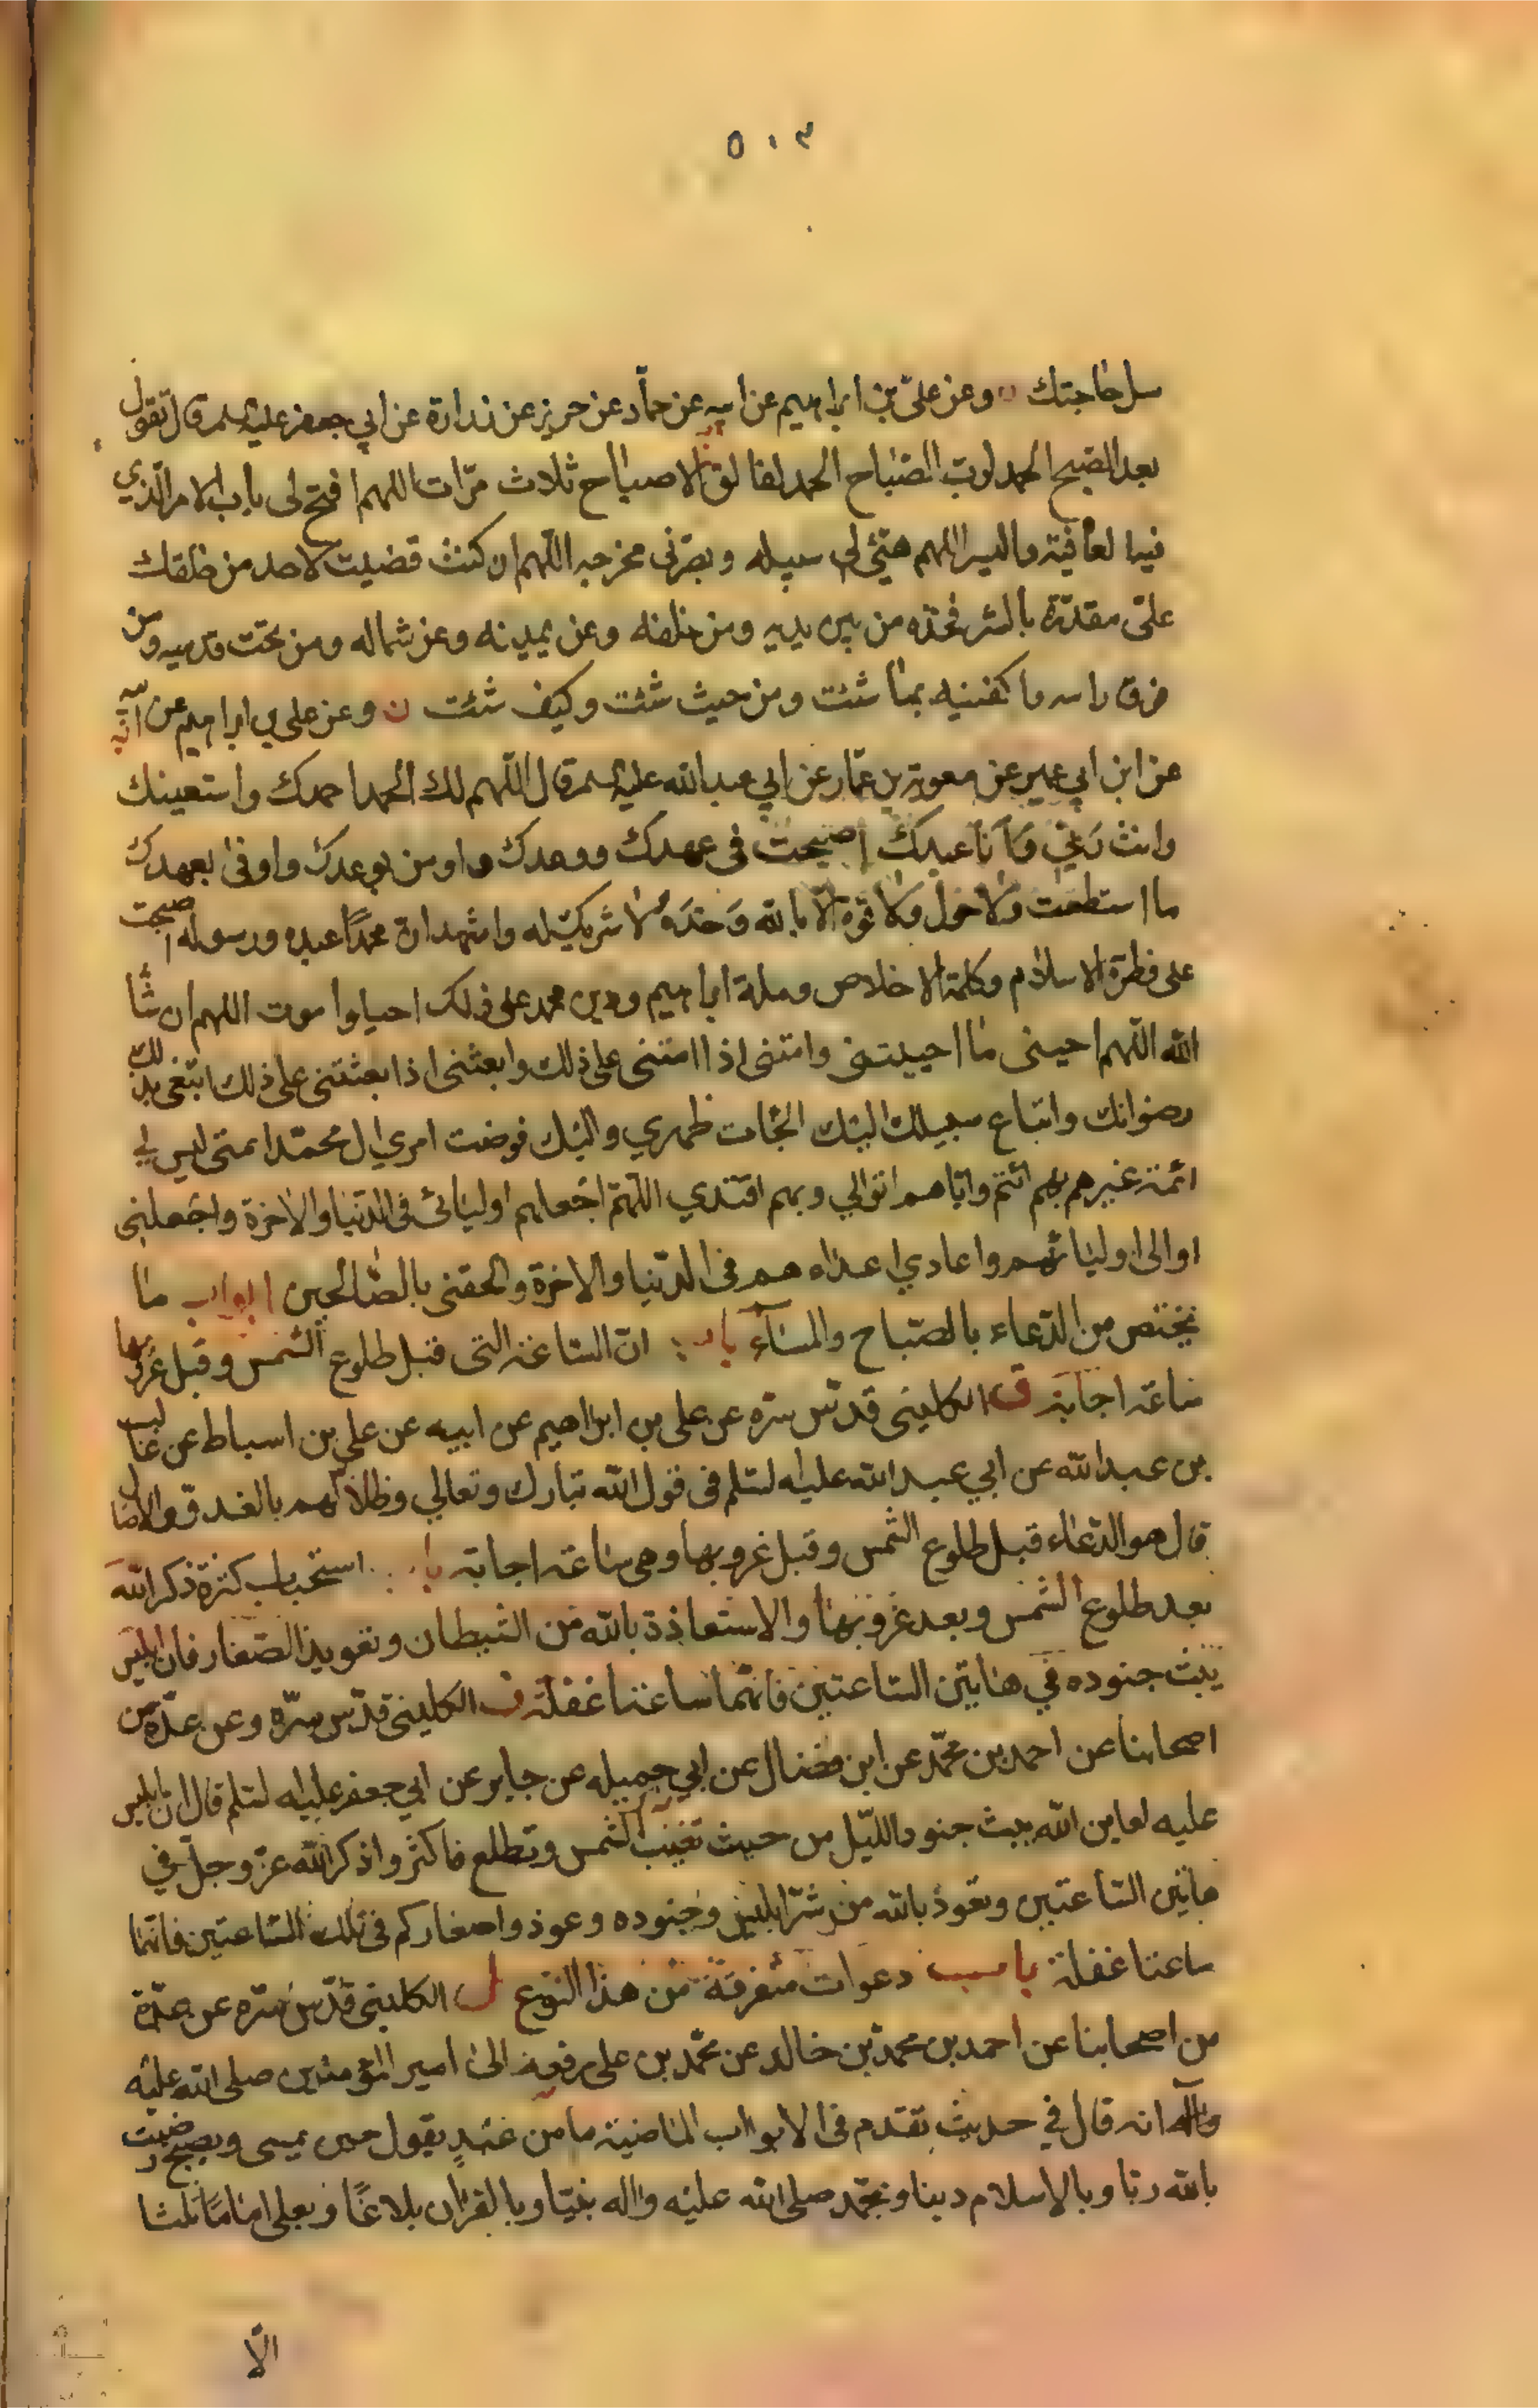 ٥٠٣
سل حاجتك ن وعن علىّ بن ابراهيم عن ابيه عن حمّاد عن حريز عن زرارة عن ابي جعفر عليه السلم قال تقول
بعد الصّبح الحمد لرب الصّباح الحمد لفالق الاصباح ثلاث مرّات اللهم افتح لى باب الامر الّذي
فيه العافية واليسر اللهم هيّئ لى سبيله وبصّرنى مخرجه اللّهم ان كنت قضيت لاحد من خلقك
علىّ مقدرة بالشر فخذه من بين يديه ومن خلفه وعن يمينه وعن شماله ومن تحت قدميه ومن
فوق راسه واكفنيه بما شئت ومن حيث شئت وكيف شئت ن وعن على بن ابراهيم عن ابيه
عن ابن ابي عمير عن معوية بن عمّار عن ابي عبد الله عليه السلم قال اللّهم لك الحمد احمدك واستعينك
وانت ربّي وانا عبدك اصبحت فى عهدك ووعدك واومن بوعدك واوفى بعهدك
ما استطعت ولا حول ولا قوة الّا بالله وحده لا شريك له واشهد ان محمدًا عبده ورسوله اصبحت
على فطرة الاسلام وكلمة الاخلاص وملة ابراهيم ودين محمد على ذلك احيا واموت اللهم ان شاء
الله اللّهم احينى ما احييتنى وامتنى اذا امتنى على ذلك وابعثنى اذا بعثتنى على ذلك ابتغى بذلك
رضوانك واتباع سبيلك اليك الجأت ظهري واليك فوضت امري ال محمّد ائمتى ليس لي
ائمة غيرهم بهم ائتم واياهم اتوالي وبهم اقتدي اللّهمّ اجعلهم اوليائى فى الدّنيا والاخرة واجعلنى
اوالى اوليائهم واعادي اعداءهم فى الدّنيا والاخرة والحقنى بالصّالحين ابواب ما
يختص من الدّعاء بالصّباح والمساء باب انّ السّاعة التى قبل طلوع الشّمس وقبل غروبها
ساعة اجابة ق الكلينى قدّس سرّه عن على بن ابراهيم عن ابيه عن على بن اسباط عن غالب
بن عبد الله عن ابي عبد الله عليه السلم فى قول الله تبارك وتعالي وظلالهم بالغدوّ والاصال
قال هو الدّعاء قبل طلوع الشّمس وقبل غروبها وهى ساعة اجابة باب استحباب كثرة ذكر الله
بعد طلوع الشّمس وبعد غروبها والاستعاذة بالله من الشيطان وتعويذ الصّغار فان ابليس
يبث جنوده في هاتين السّاعتين فانّهما ساعتا غفلة ف الكلينى قدّس سرّه وعن عدّة من
اصحابنا عن احمد بن محمّد عن ابن فضال عن ابي جميله عن جابر عن ابي جعفر عليه السلم قال ان ابليس
عليه لعاين الله يبث جنود الليّل من حيث تغيب الشّمس وتطلع فاكثروا ذكر الله عزّ وجلّ في
هاتين السّاعتين وتعوذ بالله من شرّ ابليس وجنوده وعوذوا صغاركم فى تلك السّاعتين فانّهما
ساعتا غفلة باب دعوات متفرقة من هذا النّوع ل الكلينى قدّس سّره عن عدّة
من اصحابنا عن احمد بن محمد بن خالد عن محمّد بن على رفعه الى امير المؤمنين صلى الله عليه
وآله انه قال في حديث تقدم فى الابواب الماضية ما من عبدٍ يقول حين يمسى ويصبح رضيت
بالله ربّا وبالاسلام دينا وبمحمّد صلى الله عليه واله نبيّا وبالقران بلاغًا وبعلى امامًا ثلثا
الّا